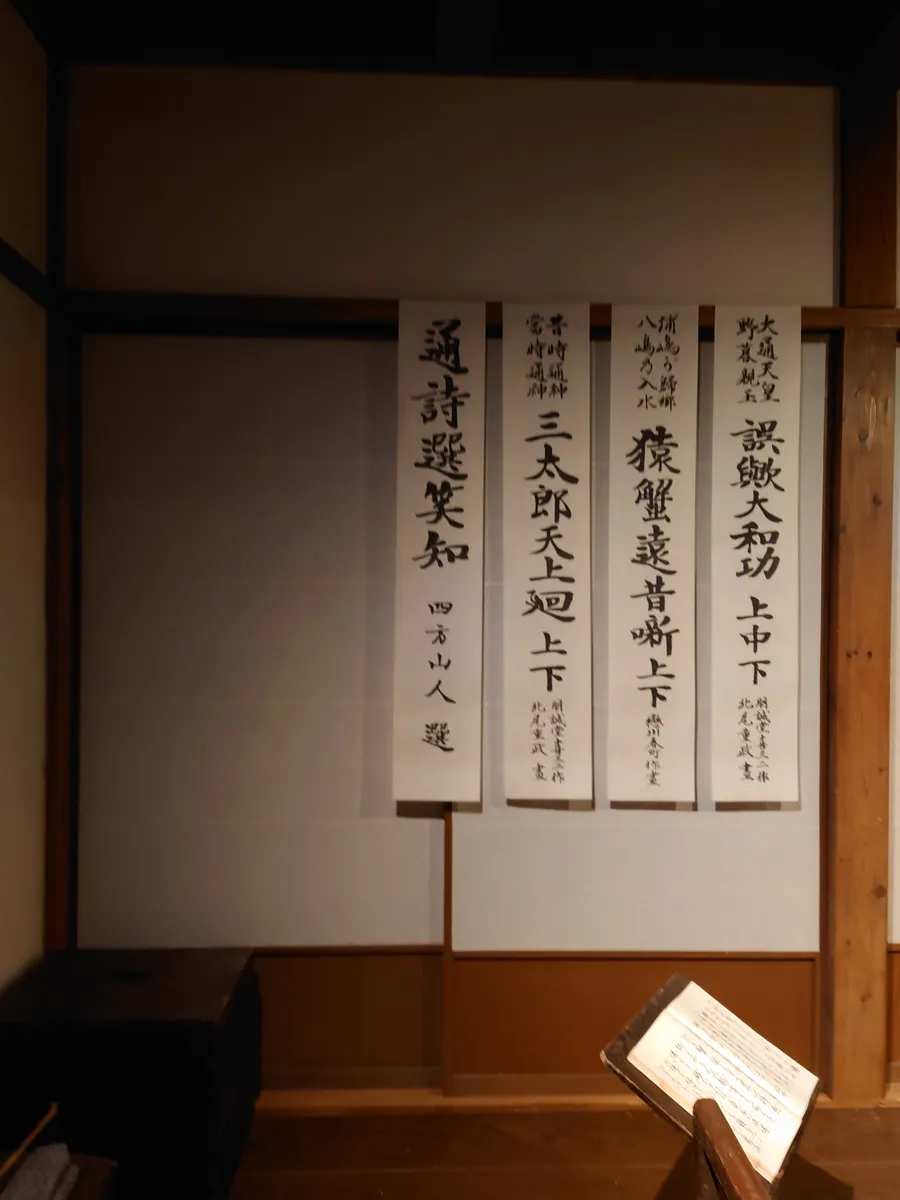 大通天皇
野暮親玉
誤歟大和功 上中下
朋誠堂喜三二作
北尾重政 畫
浦嶋が歸郷
八嶋乃入水
猿蟹遠昔噺 上下
戀川春町作畫
昔時通神
當時通神
三太郎天上廻 上下
朋誠堂喜三二作
北尾重政 畫
通詩選笑知
四方山人 選